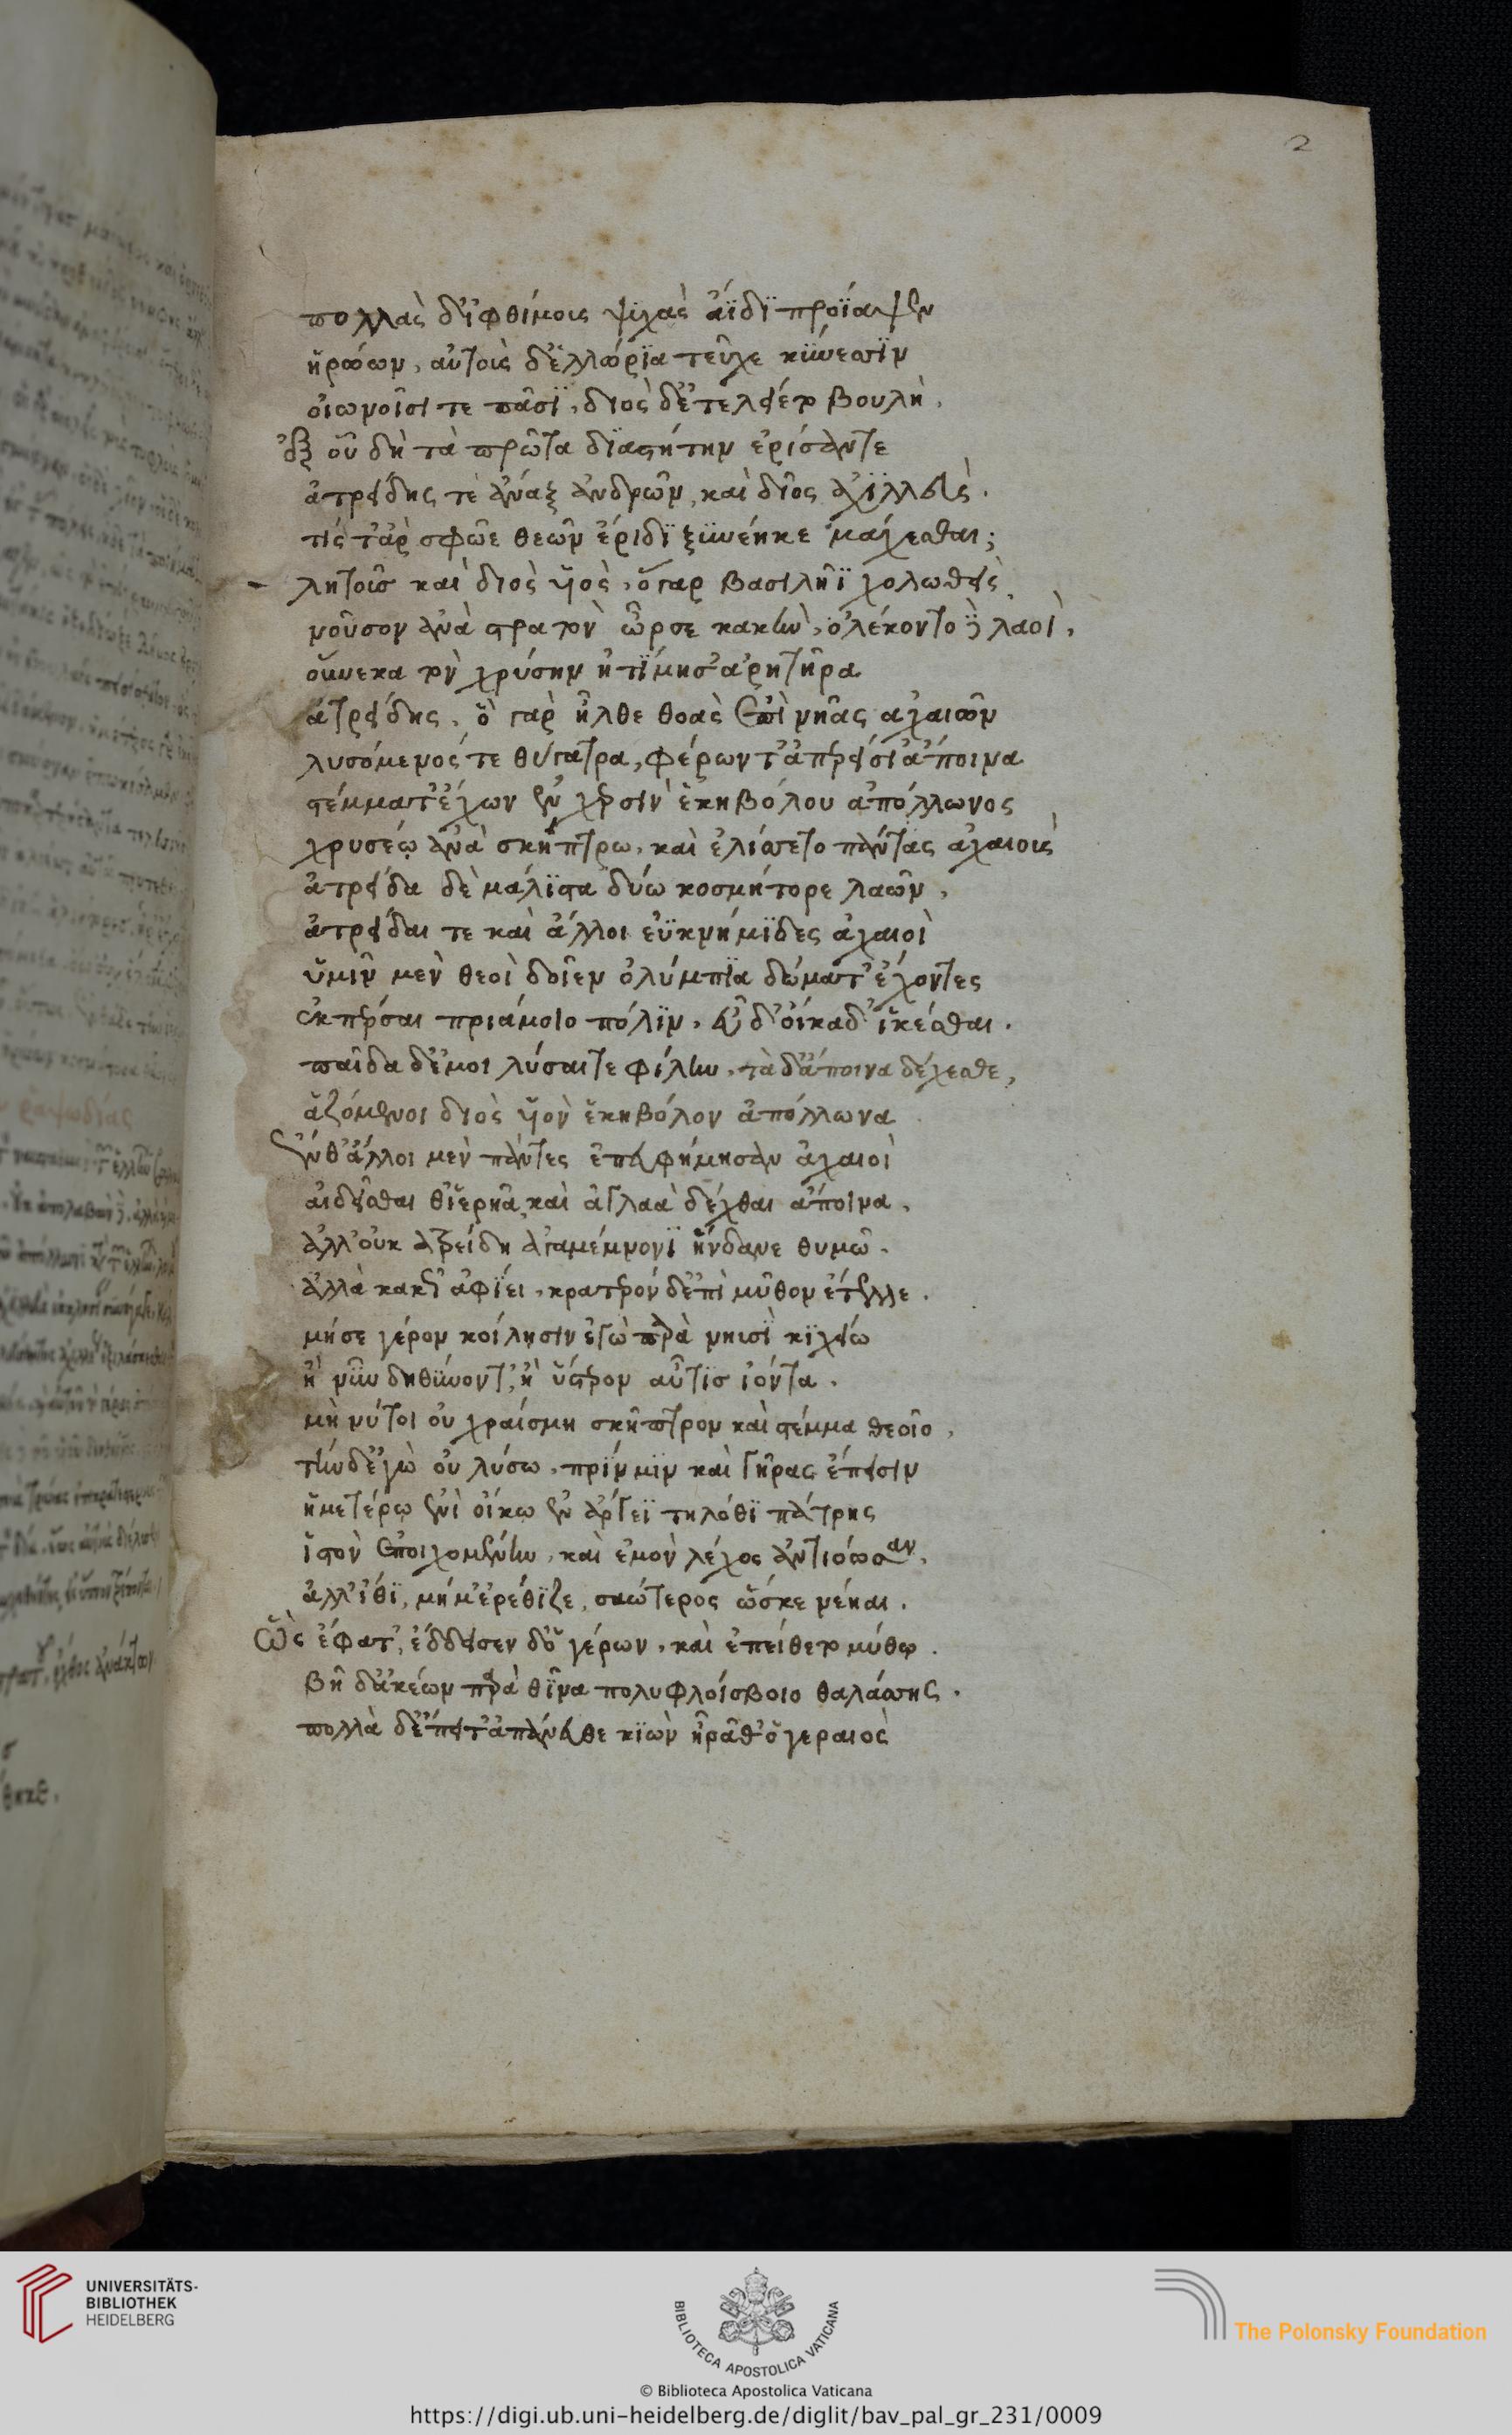 2
πολλὰς δ' ἰφθίμους ψϋχὰς ἄϊδϊ προΐαψεν
ἡρώων, αὐτοὺς δ' ἑλλώρϊα τεῦχε κϋύνεσσϊν
οἰωνοῖσί τε πᾶσϊ, διὸς δ' ἐτελείετο βουλὴ,
ἐξ οὗ δὴ τὰ πρῶτα δϊαστήτην ἐρίσαντε
ἀτρείδης τὲ ἄναξ ἀνδρῶν, καὶ δῖος ἀχϊλλεὺς.
τίς τ' ἂρ σφῶε θεῶν ἔριδϊ ξϋνέηκε μάχεσθαι;
λητοῦσ καὶ διὸς ὑϊὸς, ὃ γαρ βασιλῆϊ χολωθεὶς
νοῦσον ἀνὰ στρατὸν ὦρσε κακὴν, ὀλέκοντο δὲ λαοὶ,
οὕνεκα τὸν χρύσην ἠτΐμησ' ἀρητῆρα
ἀτρείδης, ὃ γαρ ἦλθε θοὰς ἐπὶ νῆας αχαιῶν
λυσόμενός τε θύγατρα, φέρων τ' ἀπερείσι' ἄποινα
στέμματ' ἔχων ἐν χερσὶν ἑκηβόλου απόλλωνος
χρυσέῳ ἀνὰ σκήπτρω, καὶ ἐλίσσετο πάντας ἀχαιοὺς
ἀτρείδα δὲ μάλϊστα δύω κοσμήτορε λαῶν,
ἀτρείδαι τε καὶ ἄλλοι εὐϋκνήμϊδες ἀχαιοὶ
ὑμῖν μεν θεοὶ δοῖεν ὀλύμπϊα δώματ' ἔχοντες
ἐκπέρσαι πριάμοιο πόλϊν, εὖ δ' οἴκαδ' ἱκέσθαι.
παῖδα δ' ἐμοι λύσαιτε φίλην, τὰ δ' ἄποινα δέχεσθε,
ἁζόμενοι διὸς ὑϊὸν ἑκηβόλον ἀπόλλωνα
ἔνθ' ἄλλοι μεν πάντες ἐπευφήμησαν ἀχαιοὶ
αἰδεῖσθαι θ' ἱερῆα, καὶ ἀγλαὰ δέχθαι ἄποινα,
ἀλλ' οὐκ ἀτρείδη ἀγαμέμνονϊ ἥνδανε θυμῶ.
ἀλλὰ κακῶς ἀφΐει, κρατερὸν δ' ἐπὶ μῦθον ἔτελλε.
μήσε γέρον κοίλησιν ἐγὼ παρὰ νηυσὶ κϊχείω
ἢ νῦν δηθύνοντ', ἢ ὕστερον αὖτϊσ ἰόντα.
μὴ νύτοι οὐ χραίσμη σκῆπτρον καὶ στέμμα θεοῖο,
τὴν δ' ἐγὼ οὐ λύσω, πρΐν μϊν καὶ γῆρας ἔπεισιν
ἡμετέρῳ ἐνὶ οἴκω ἐν ἄργεϊ τηλόθϊ πάτρης
ἱστὸν ἐποιχομένην, καὶ ἐμὸν λέχος ἀντιόωσαν,
ἀλλ' ἴθϊ, μή μ' ἐρέθϊζε, σαώτερος ὥσκε νέηαι.
Ὣς ἔφατ', ἔδδεισεν δ' ὁ γέρων, καὶ ἐπείθετο μύθῳ.
βῆ δ' ἀκέων παρὰ θῖνα πολυφλοίσβοιο θαλάσσης.
πολλὰ δ' ἔπειτ' ἀπάνευθε κϊὼν ἠρᾶθ' ὁ γεραιὸς
UNIVERSITÄTS-
BIBLIOTHEK
HEIDELBERG
BIBLIOTECA APOSTOLICA VATICANA
© Biblioteca Apostolica Vaticana
The Polonsky Foundation
https://digi.ub.uni-heidelberg.de/diglit/bav_pal_gr_231/0009